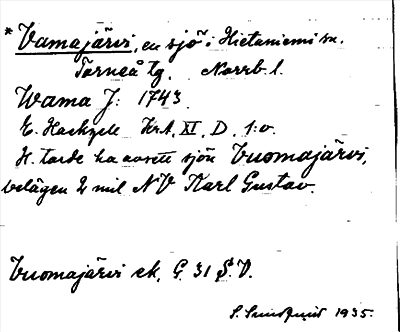 * Vamajärvi, en sjö i Hietaniemi sn.
Torneå tg. Norrb. l.
Wama J: 1743.
E. Hackzell Krt. XI, D, 1:o.
H. torde ha avsett sjön Vuomajärvi,
belägen 2 mil NV Karl Gustav.
Vuomajärvi ek. G. 31 S.V.
1935.